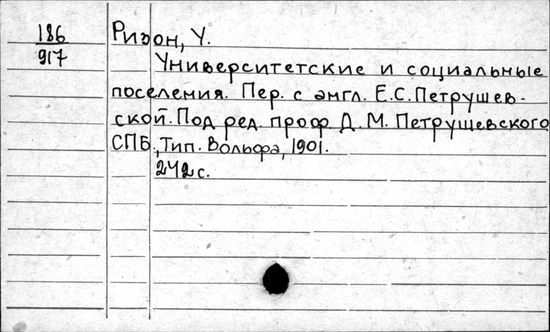 186
917
Ризон, У.
Университетские и социальные
поселения. Пер. с англ. Е.С. Петрушев-
ской. Под ред. проф Д. М. Петрушевского
СПБ., Тип. Вольфа, 1901.
242 с.